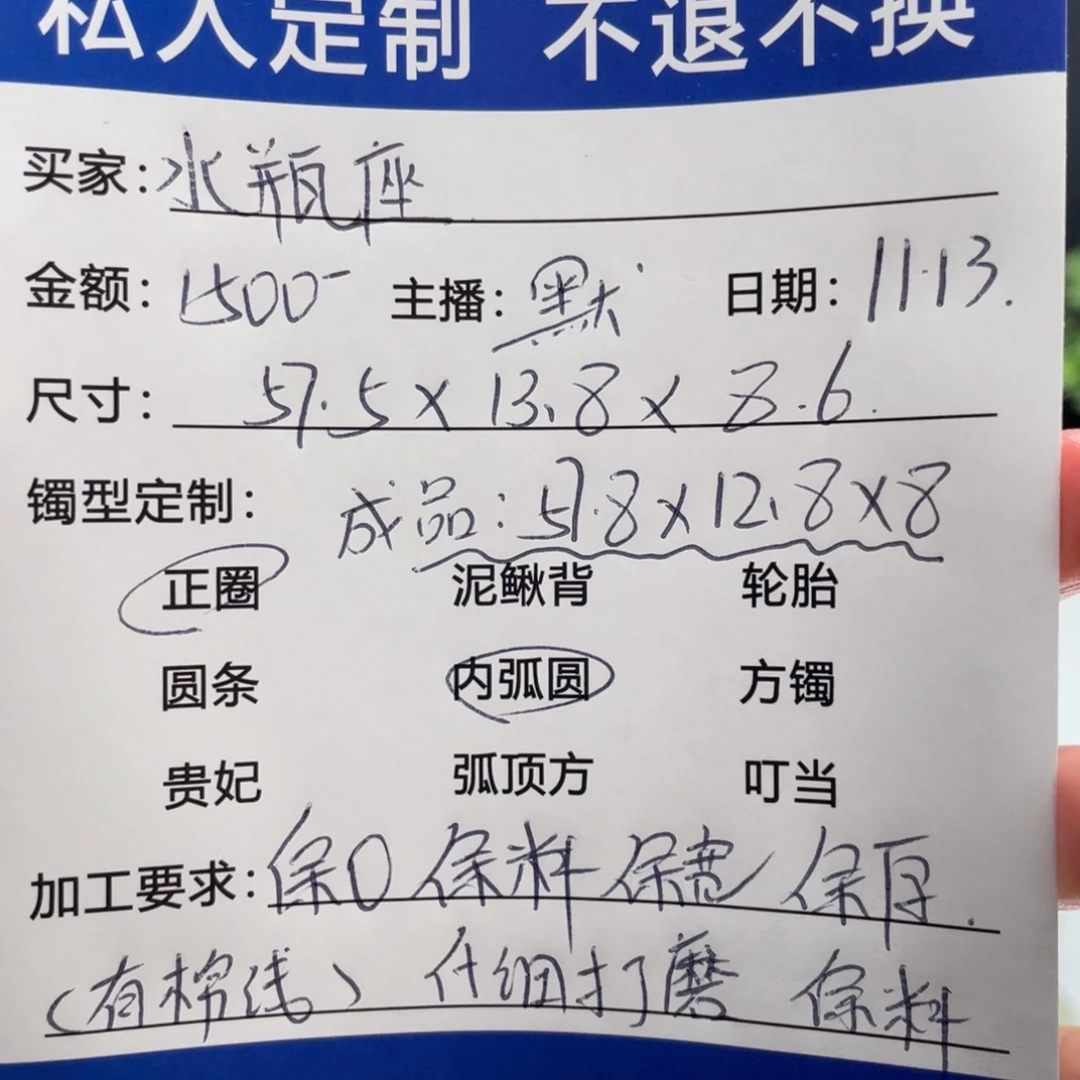 私人定制 不退不换
买家: 水瓶座
金额: 1500- 主播: 默 日期: 11.13.
尺寸: 57.5×13.8×8.6.
镯型定制: 成品: 57.8×12.8×8
正圈 泥鳅背 轮胎
圆条 内弧圆 方镯
贵妃 弧顶方 叮当
加工要求: 保口 保料 保宽 保厚.
(有棉线) 仔细打磨 保料